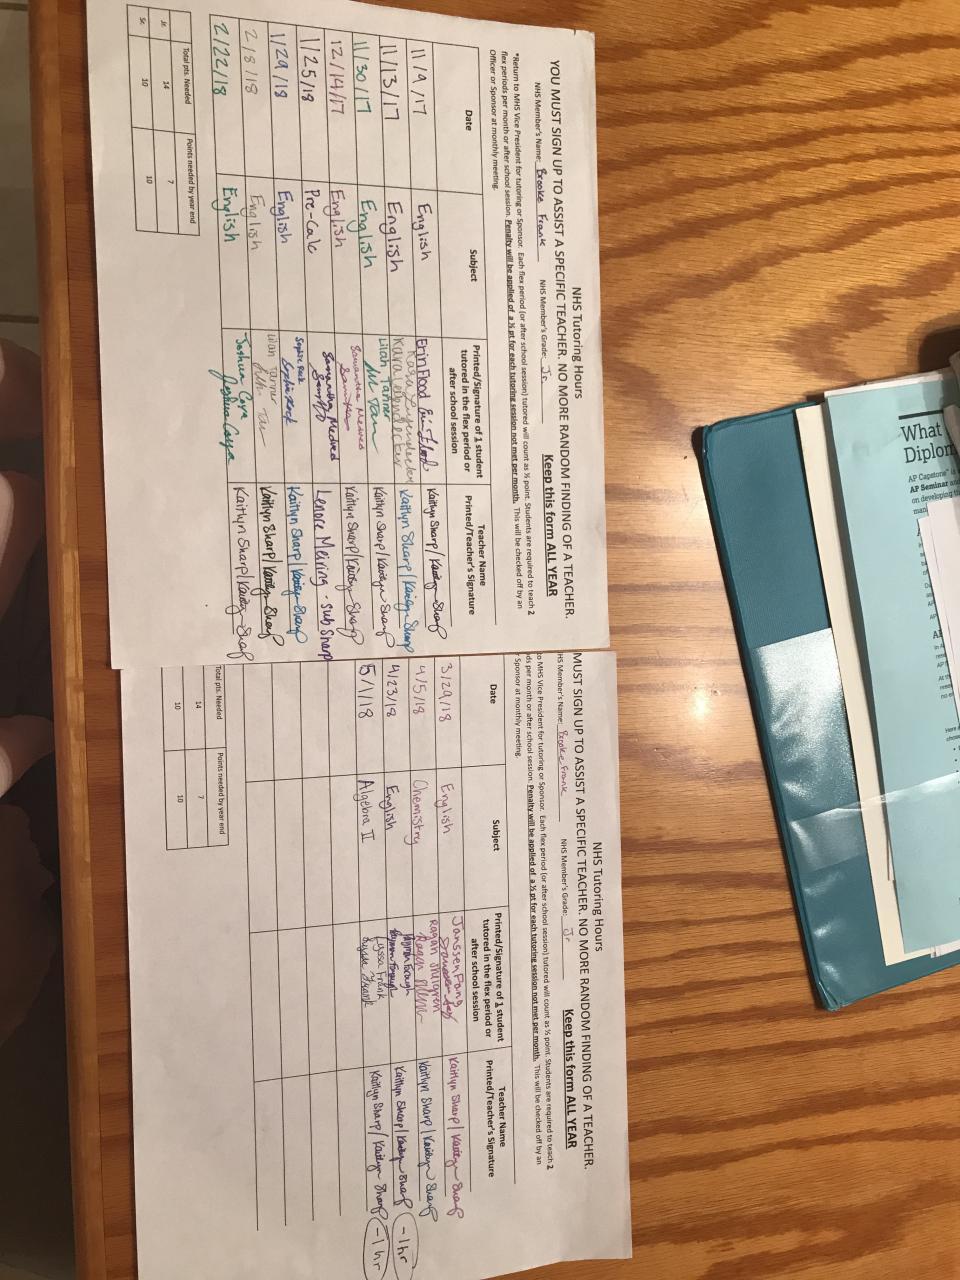 NHS Tutoring Hours
YOU MUST SIGN UP TO ASSIST A SPECIFIC TEACHER. NO MORE RANDOM FINDING OF A TEACHER.
NHS Member's Name: Brooke Frank NHS Member's Grade: Jr. Keep this form ALL YEAR
*Return to MHS Vice President for tutoring or Sponsor. Each flex period (or after school session) tutored will count as ½ point. Students are required to teach 2
flex periods per month or after school session. Penalty will be applied of a ½ pt for each tutoring session not met per month. This will be checked off by an
Officer or Sponsor at monthly meeting.
Date Subject Printed/Signature of 1 student tutored in the flex period or after school session Teacher Name Printed/Teacher's Signature
11/9/17 English Erin Flood Erin Flood Kaitlyn Sharp/Kaitlyn Sharp
11/13/17 English Kara Kaitlyn Sharp/Kaitlyn Sharp
11/30/17 English Lilah Tanner Kaitlyn Sharp/Kaitlyn Sharp
12/14/17 English Samantha Medved Kaitlyn Sharp/Kaitlyn Sharp
1/25/18 Pre-Calc Samantha Medved Lenore Meiring - Sub Sharp
1/29/18 English Sophie Kaitlyn Sharp/Kaitlyn Sharp
2/8/18 English Lilah Tanner Kaitlyn Sharp/Kaitlyn Sharp
2/22/18 English Joshua Kaitlyn Sharp/Kaitlyn Sharp
Total pts. Needed Points needed by year end
Jr. 14 7
Sr. 10 10
NHS Tutoring Hours
MUST SIGN UP TO ASSIST A SPECIFIC TEACHER. NO MORE RANDOM FINDING OF A TEACHER.
HS Member's Name: Brooke Frank NHS Member's Grade: Jr Keep this form ALL YEAR
to MHS Vice President for tutoring or Sponsor. Each flex period (or after school session) tutored will count as ½ point. Students are required to teach 2
ds per month or after school session. Penalty will be applied of a ½ pt for each tutoring session not met per month. This will be checked off by an
Sponsor at monthly meeting.
Date Subject Printed/Signature of 1 student tutored in the flex period or after school session Teacher Name Printed/Teacher's Signature
3/29/18 English Janssen Fang Kaitlyn Sharp/Kaitlyn Sharp
4/5/18 Chemistry Ragan Kaitlyn Sharp/Kaitlyn Sharp
4/23/18 English Kaitlyn Sharp/Kaitlyn Sharp -1 hr
5/1/18 Algebra II Lyssa Frank Kaitlyn Sharp/Kaitlyn Sharp -1 hr
Total pts. Needed Points needed by year end
14 7
10 10
What
Diplom
AP Capstone
AP Seminar and
on developing